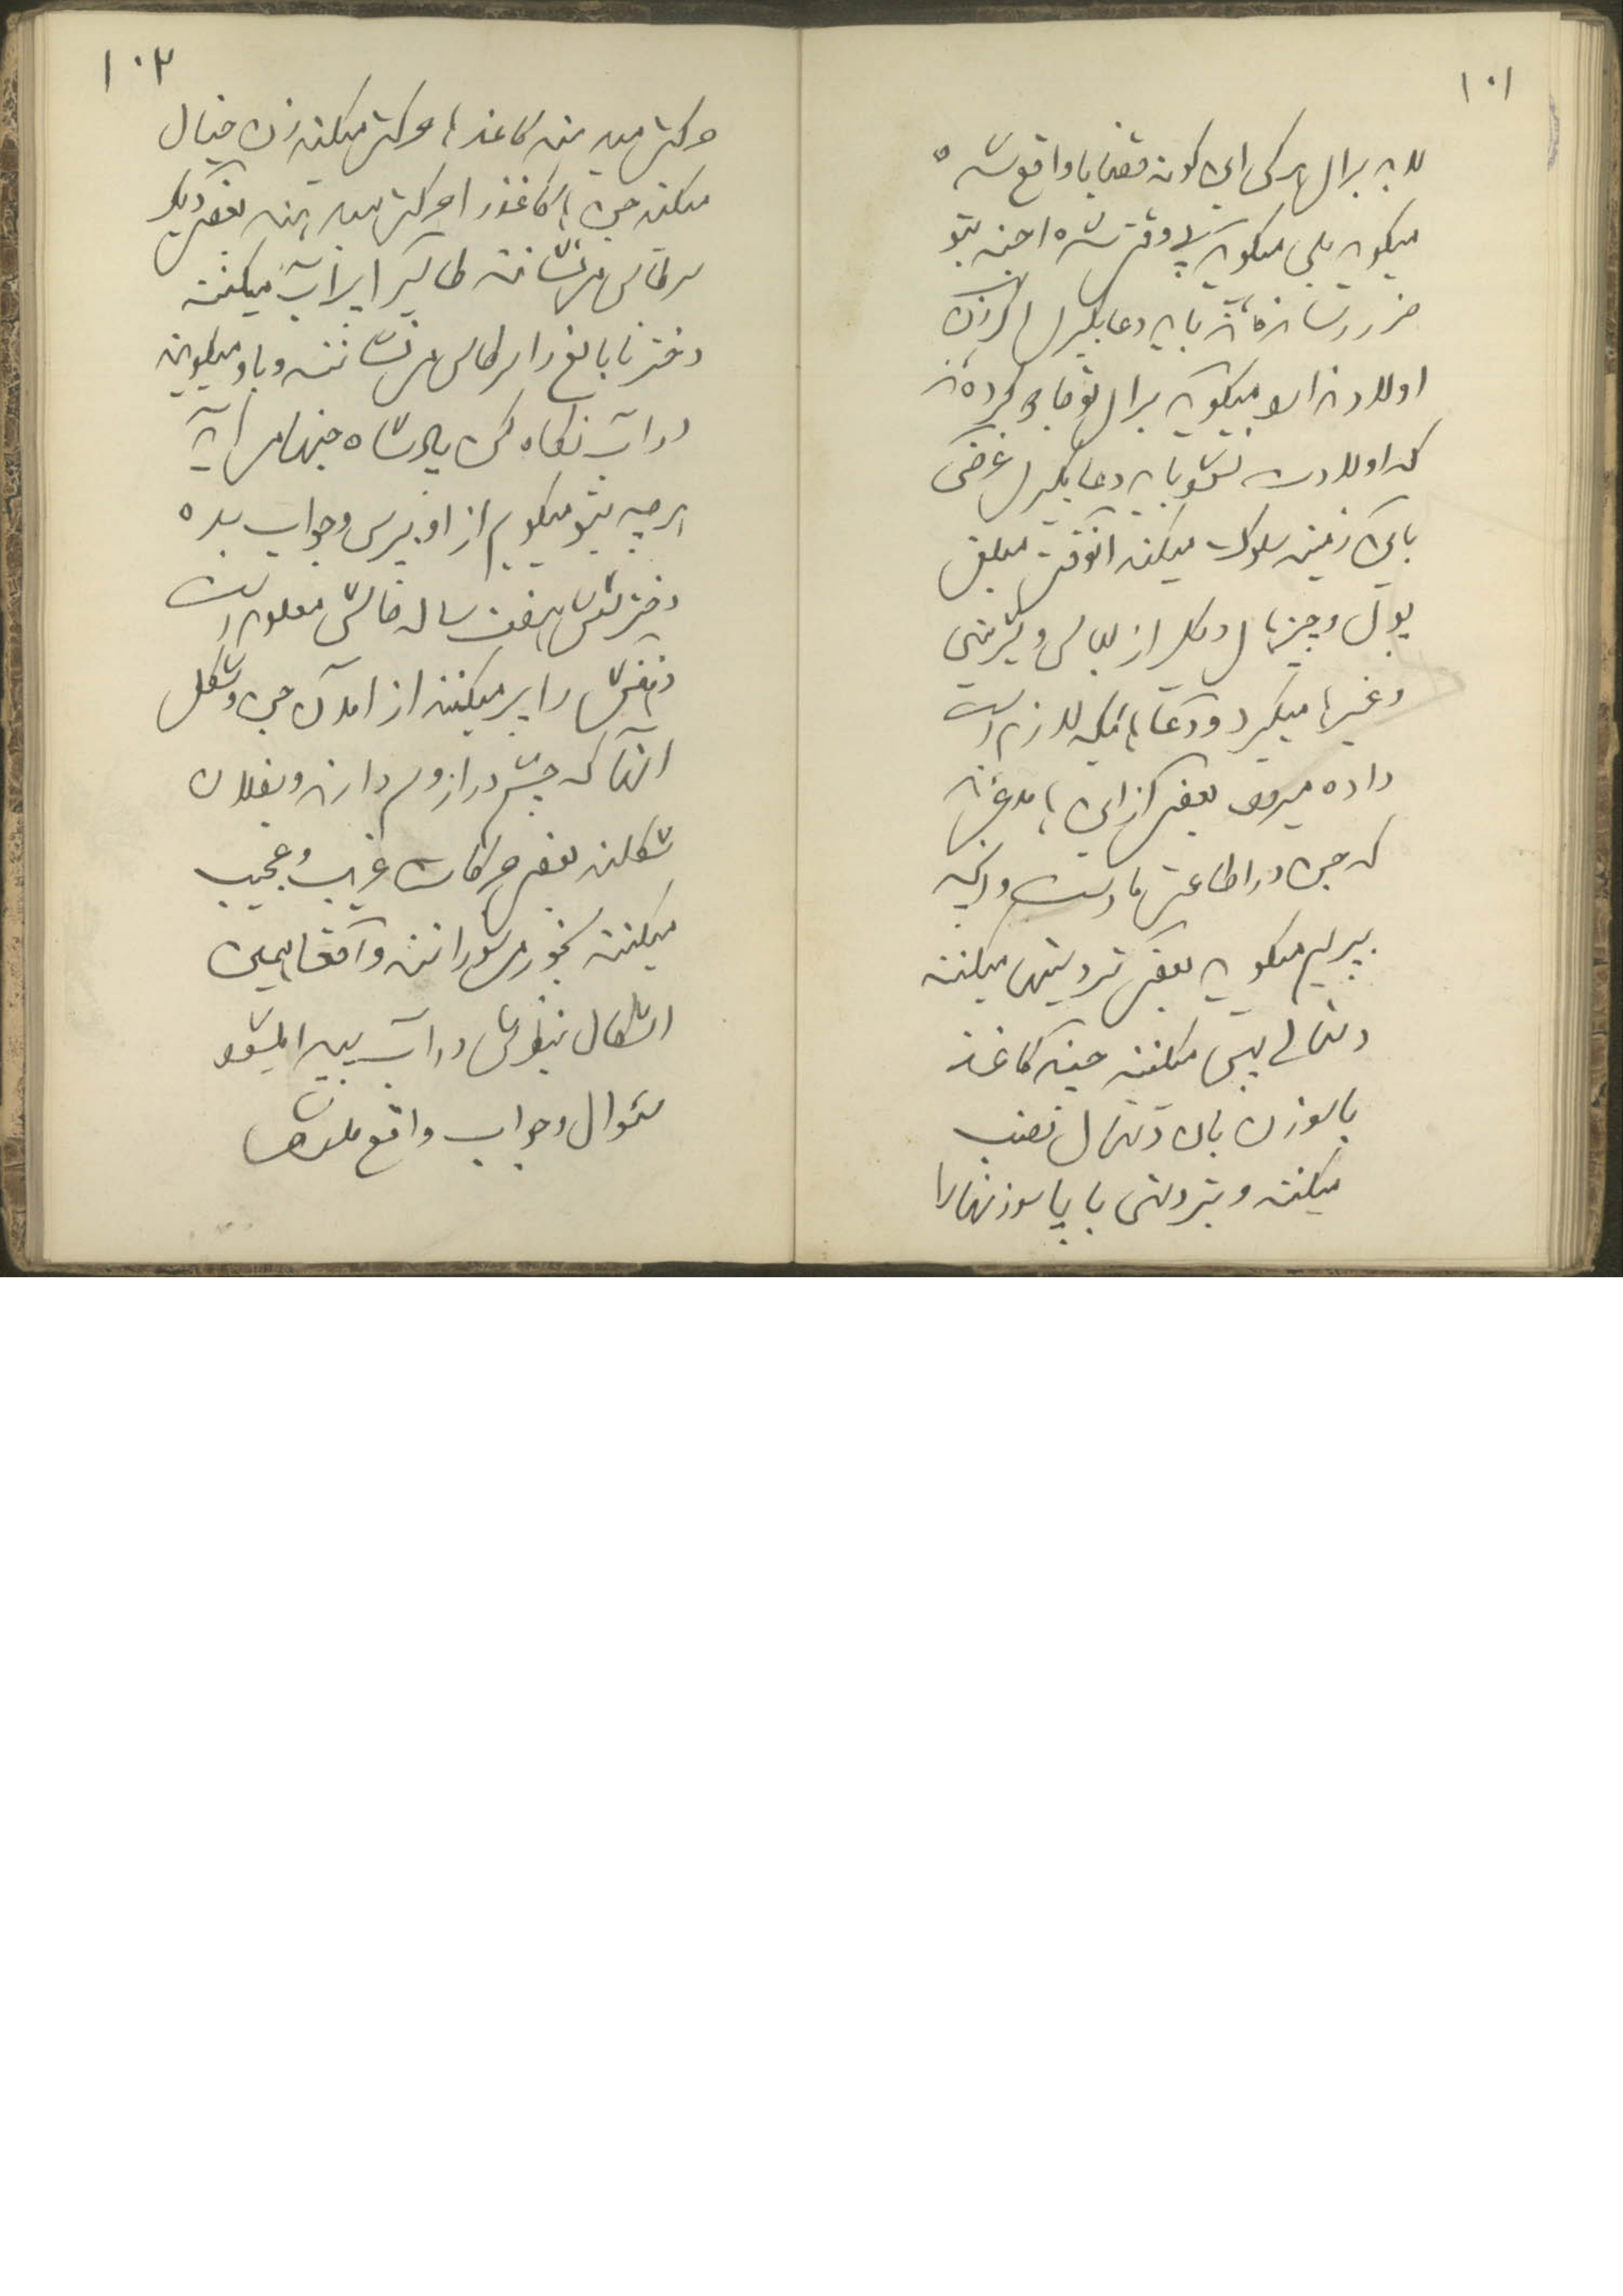 ۱۰۱
لابد برای هر کس این گونه قضایا واقع شده
میگوید بلی میگوید پس وقت شده اجنه بتو
ضرر رسانده‌اند باید دعا بگیری اگر زن
اولاد ندارد میگوید برای تو جادو کرده‌اند
که اولادت نشود باید دعا بگیری غرض
باین زمینه سلوک میکند آنوقت مبلغی
پول و چیزهای دیگر از لباس و شیرینی
و غیره میگیرد و دعاهائیکه لازم است
داده میرود بعضی از اینها مدعی‌اند
که جن در اطاعت ما است و آنچه
بپرسیم میگوید بعضی تردستیها میکنند
دستمالی پهن میکنند چند کاغذ
با سوزن بان دستمال نصب
میکنند و بتردستی با پا سوزنها را
۱۰۲
حرکت میدهند کاغذها حرکت میکنند زن خیال
میکند جن‌ها کاغذ را حرکت میدهند بعضی دیگر
سر طاس می‌نشانند طاس را پر از آب میکنند
دختر نابالغ را سر طاس می‌نشانند و باو میگویند
در آب نگاه کن پادشاه جنها می‌آید
هر چه بتو میگویم از او بپرس و جواب بده
دختر شش هفت ساله حالش معلوم است
ذهنش را پر میکنند از آمدن جن و شکل
آنها که چشم دراز و سم دارند و بفلان
شکلند بعضی حرکات غریب و عجیب
میکنند بخور میسوزانند و آنوقت همین
اشکال بنظرش در آب پیدا میشود
سئوال و جواب واقع میشود